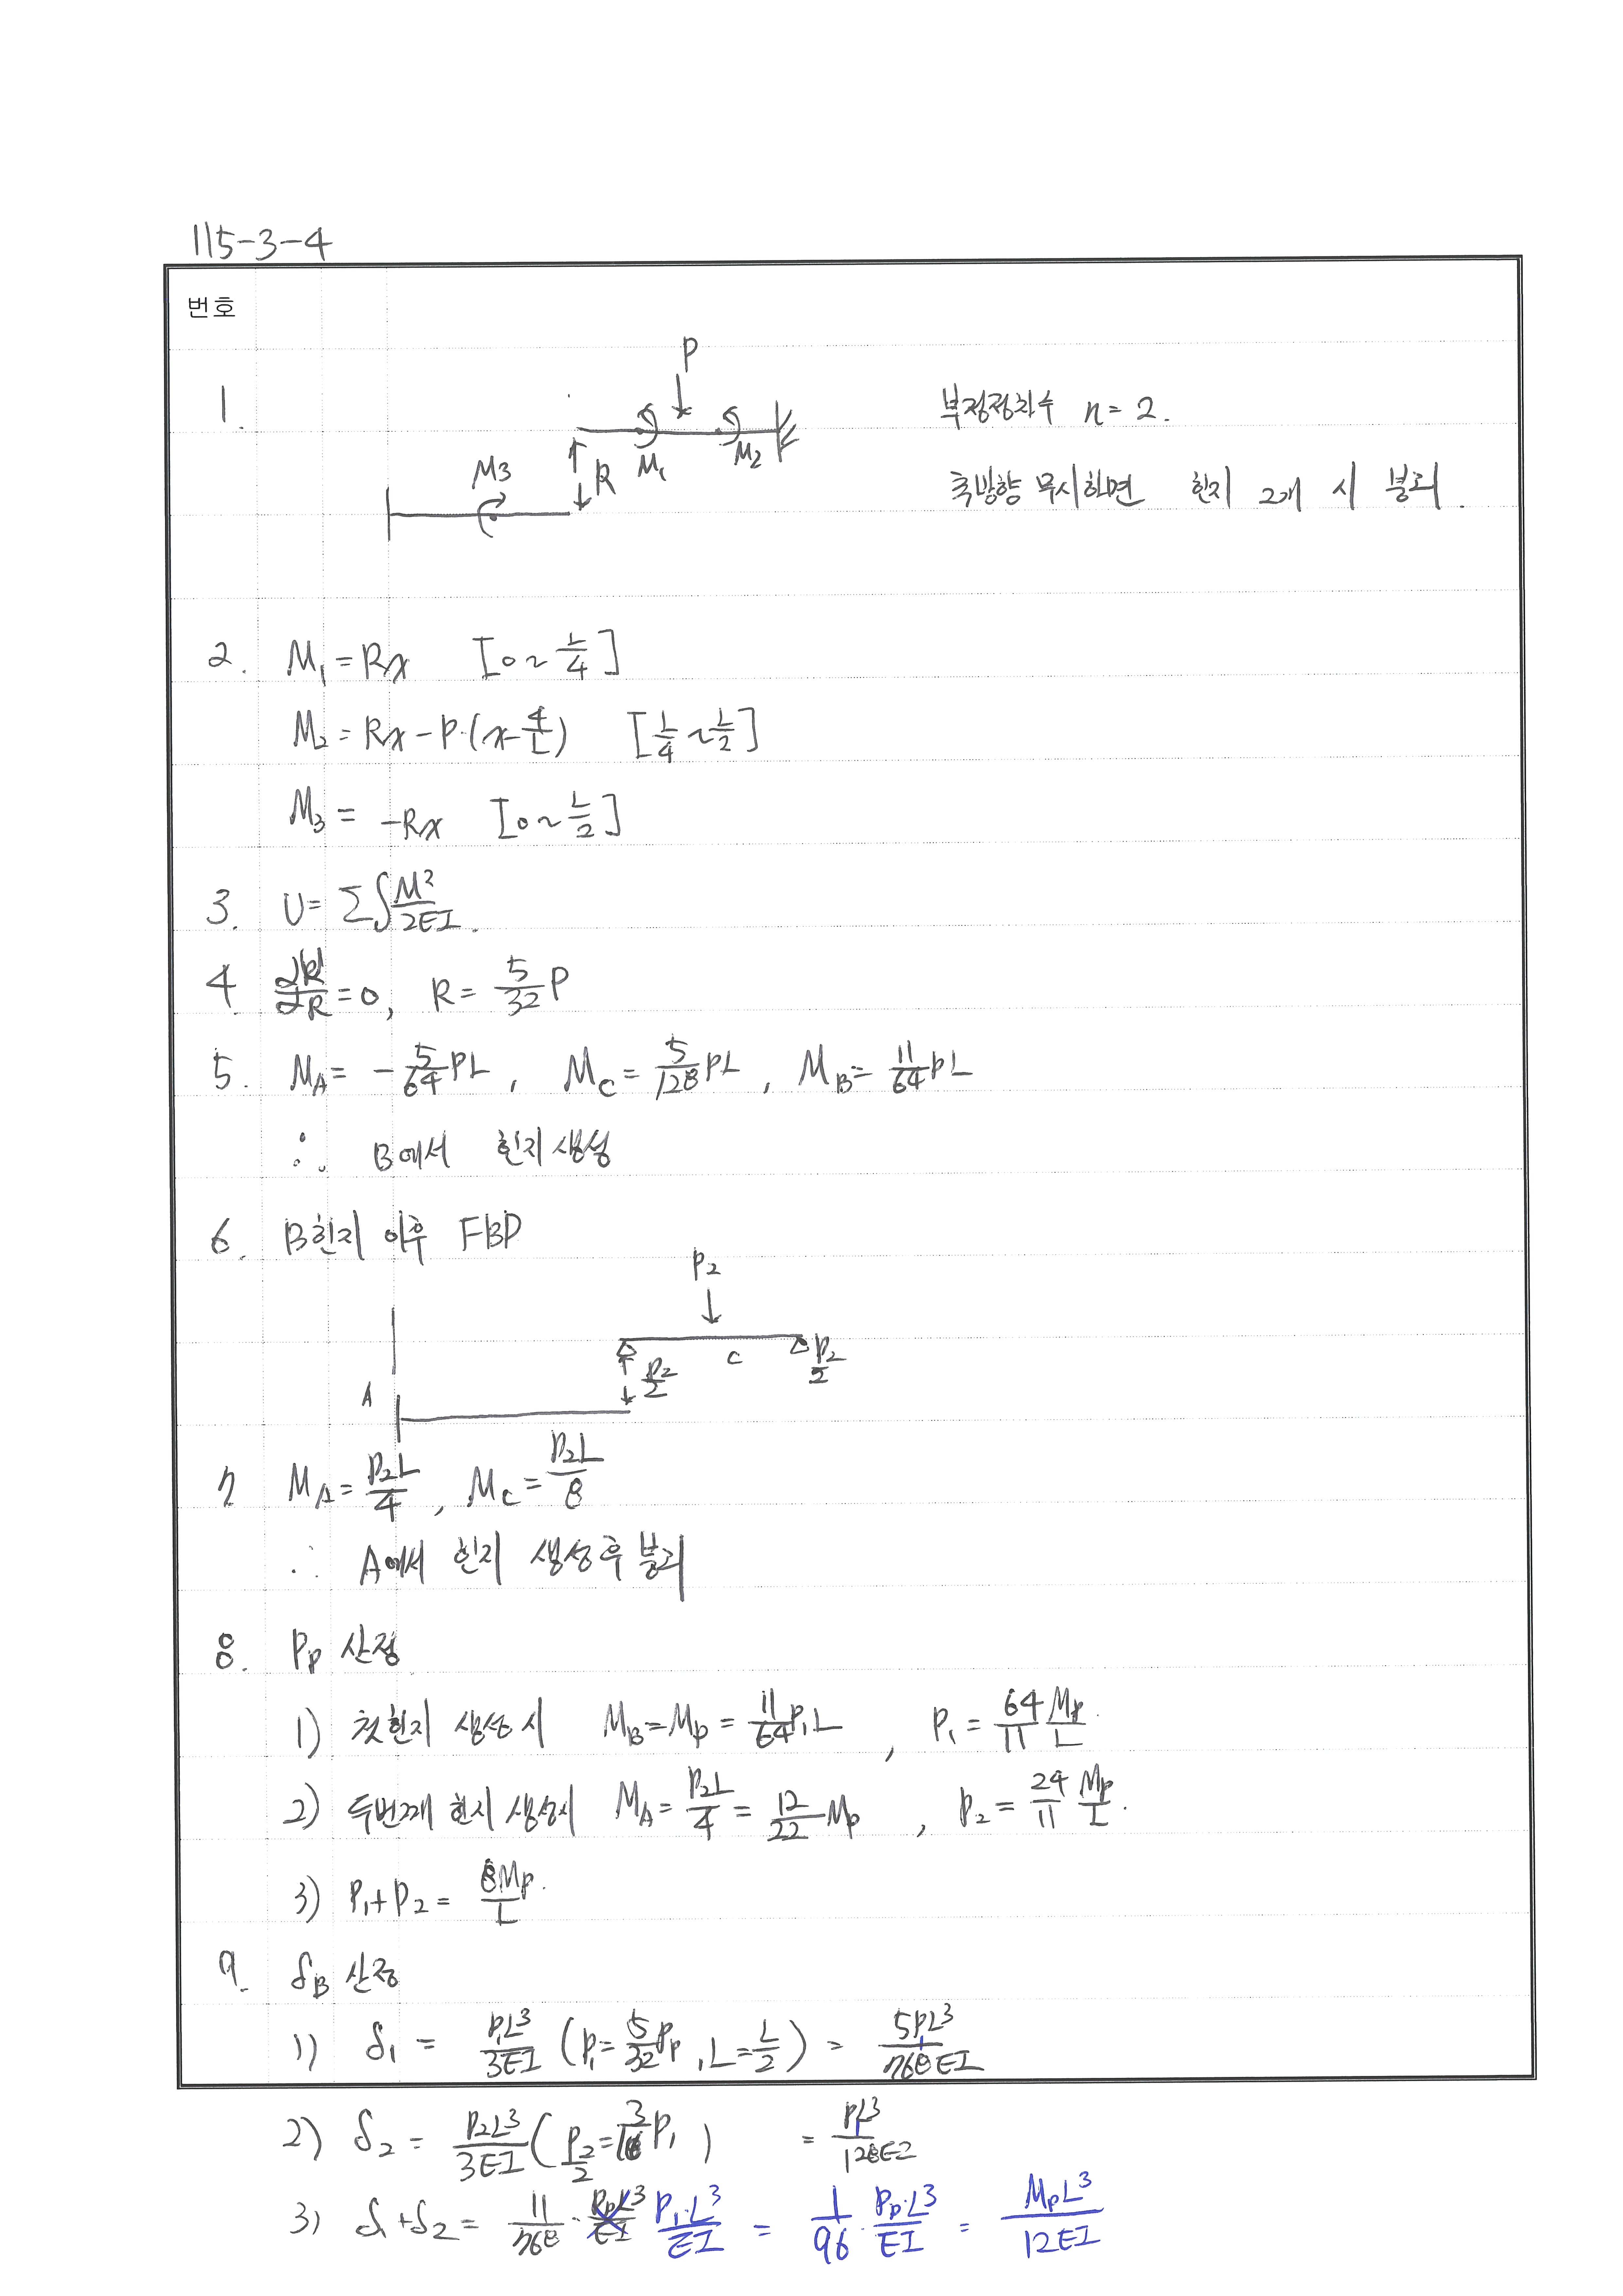 115-3-4
번호
1. P M₃ R M₁ M₂ 부정정차수 n = 2.
축방향 무시하면 힌지 2개 시 붕괴.
2. M₁ = Rx [0 ~ L/4]
M₂ = Rx - P·(x - 4/L) [L/4 ~ L/2]
M₃ = -Rx [0 ~ L/2]
3. U = Σ∫ M²/2EI.
4 = 0, R = 5/32 P
5. M_A = - 5/64 PL, M_C = 5/128 PL, M_B = 11/64 PL
∴ B에서 힌지 생성
6. B힌지 이후 FBD
P₂
A P₂/2 C P₂/2
7 M_A = P₂L/4, M_C = P₂L/8
∴ A에서 힌지 생성 후 붕괴
8. Pp 산정
1) 첫힌지 생성 시 M_B = Mp = 11/64 P₁L, P₁ = 64/11 Mp/L.
2) 두번째 힌지 생성시 M_A = P₂L/4 = 12/22 Mp, P₂ = 24/11 Mp/L.
3) P₁ + P₂ = 8Mp/L.
9. δ_B 산정
1) δ₁ = P₁L³/3EI (P₁ = 5/32 Pp, L = L/2) = 5P₁L³/768EI
2) δ₂ = P₂L³/3EI (P₂/2 = 3/16 P₁) = P₁L³/128EI
3) δ₁ + δ₂ = 11/768 · P₁·L³/EI = 1/96 · Pp·L³/EI = MpL³/12EI